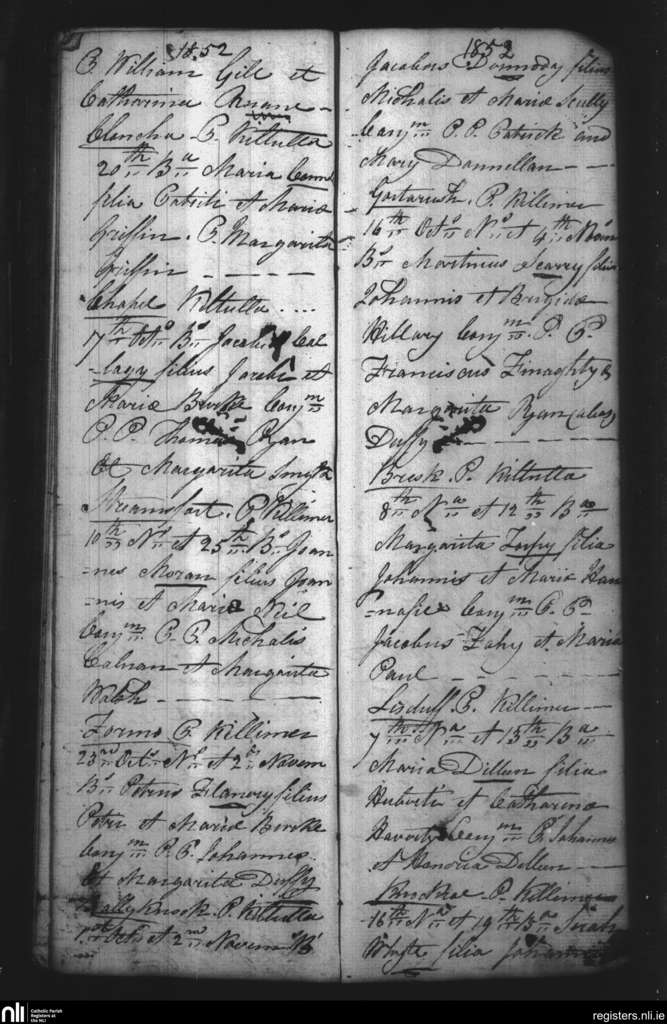 1852
P. William Gill et
Catharina Keane
Cloncha P. Kiltulla
20th Ba Maria Conn
filia Patritii et Mariæ
Griffin. P. Margarita
Griffin
Chapel Kiltulla
7th Octo Bs Jacobus Cal
=lagy filius Jacobi et
Mariæ Burke Conjm
P. P. Thomas Ryan
et Margarita Smyth
P. Killimer
10th Ns et 25th Bs Joan
=nes Moran filius Joan
=nis et Mariæ Neil
Conjm P. P. Michalis
Calnan et Margarita
Walsh
P. Killimer
23rd Octo Ns et 2d Novem
Bs Petrus Flanery filius
Petri et Mariæ Burke
Conjm P. P. Johannes
et Margarita Duffy
Ballyknock P. Kiltulla
et 2nd Novem B
1852
Jacobus Dormody filius
Michalis et Mariæ Scully
Conjm P. P. Patrick and
Mary Donnellan
P. Killimer
16th Octo Ns et 4th Novem
Bs Martinus Searey filius
Johannis et Brigidæ
Hillary Conjm P. P.
Franciscus Finaghty &
Margarita Ryan (alias)
Duffy
Brusk P. Kiltulla
8th Na et 12th Ba
Margarita filia
Johannis et Maria Han
Conjm P. P.
Jacobus Fahy et Maria
Paul
Lisduff P. Killimer
7th Na et 13th Ba
Maria Dillon filia
Huberti et Catharinæ
Haverty Conjm P. Johannes
et Honoria Dillon
P. Killimer
16th Na et 19th Ba Sarah
Whyte filia Johannis
nli
Catholic Parish
Registers at
the NLI
registers.nli.ie